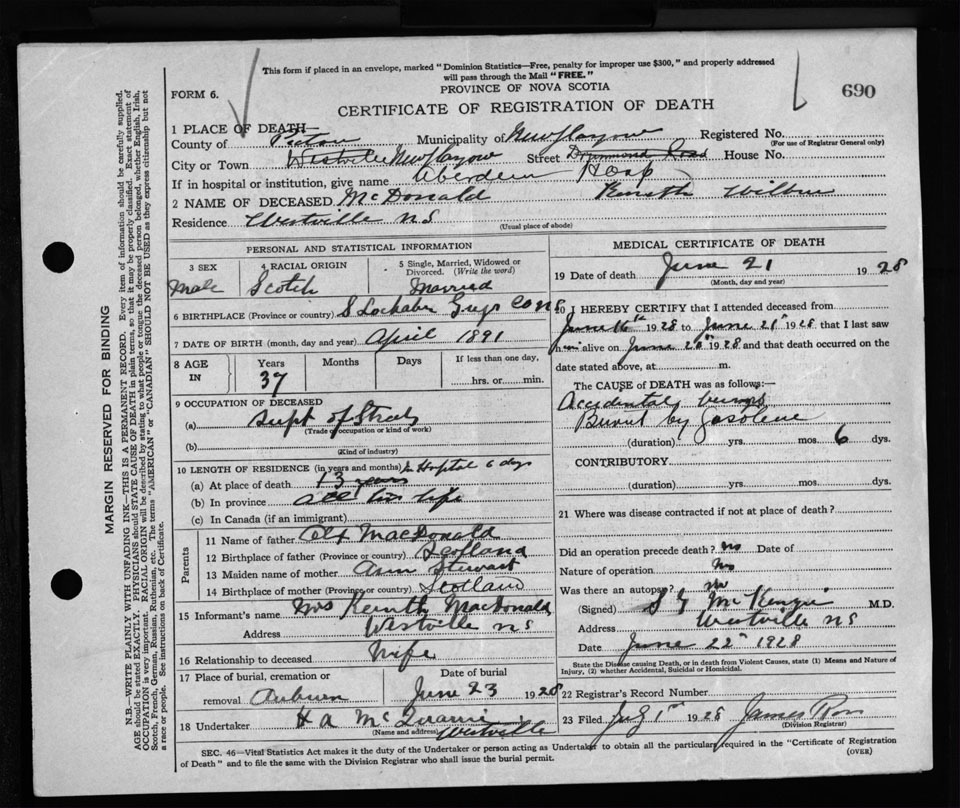 This form if placed in an envelope, marked "Dominion Statistics—Free, penalty for improper use $300," and properly addressed
will pass through the Mail "FREE."
FORM 6.
PROVINCE OF NOVA SCOTIA
690
CERTIFICATE OF REGISTRATION OF DEATH
1 PLACE OF DEATH—
County of Pictou Municipality of New Glasgow Registered No.
(For use of Registrar General only)
City or Town Westville New Glasgow Street Drummond Road House No.
If in hospital or institution, give name Aberdeen Hosp
2 NAME OF DECEASED McDonald Kenneth Wilbur
Residence Westville N S
(Usual place of abode)
PERSONAL AND STATISTICAL INFORMATION
3 SEX
Male
4 RACIAL ORIGIN
Scotch
5 Single, Married, Widowed or Divorced. (Write the word)
Married
6 BIRTHPLACE (Province or country) S Lochaber Guys Co N S
7 DATE OF BIRTH (month, day and year) April 1891
8 AGE IN
Years 37
Months
Days
If less than one day,
hrs. or min.
9 OCCUPATION OF DECEASED
(a) Supt of Streets
(Trade occupation or kind of work)
(b)
(Kind of industry)
10 LENGTH OF RESIDENCE (in years and months) In Hospital 6 days
(a) At place of death 13 years
(b) In province all his life
(c) In Canada (if an immigrant)
Parents
11 Name of father Alex MacDonald
12 Birthplace of father (Province or country) Scotland
13 Maiden name of mother Ann Stewart
14 Birthplace of mother (Province or country) Scotland
15 Informant's name Mrs Kenneth MacDonald
Address Westville N S
16 Relationship to deceased Wife
17 Place of burial, cremation or removal Auburn
Date of burial June 23 1928
18 Undertaker H A McQuarrie
(Name and address) Westville
MEDICAL CERTIFICATE OF DEATH
19 Date of death June 21 1928
(Month, day and year)
20 I HEREBY CERTIFY that I attended deceased from
June 16th 1928 to June 21st 1928, that I last saw
him alive on June 20th 1928 and that death occurred on the
date stated above, at m.
The CAUSE of DEATH was as follows:—
Accidental burns
Burnt by gasolene
(duration) yrs. mos. 6 dys.
CONTRIBUTORY
(duration) yrs. mos. dys.
21 Where was disease contracted if not at place of death?
Did an operation precede death? no Date of
Nature of operation no
Was there an autopsy? no
(Signed) McKenzie M.D.
Address Westville N S
Date June 22nd 1928
State the Disease causing Death, or in death from Violent Causes, state (1) Means and Nature of
Injury, (2) whether Accidental, Suicidal or Homicidal.
22 Registrar's Record Number
23 Filed July 1st 1928 James Ross
(Division Registrar)
SEC. 46—Vital Statistics Act makes it the duty of the Undertaker or person acting as Undertaker to obtain all the particulars required in the "Certificate of Registration
of Death" and to file the same with the Division Registrar who shall issue the burial permit.
(OVER)
MARGIN RESERVED FOR BINDING
N.B.—WRITE PLAINLY WITH UNFADING INK—THIS IS A PERMANENT RECORD. Every item of information should be carefully supplied.
AGE should be stated EXACTLY. PHYSICIANS should STATE CAUSE OF DEATH in plain terms, so that it may be properly classified. Exact statement of
OCCUPATION is very important. RACIAL ORIGIN will be described by stating to what people or tongue the deceased person belonged, whether English, Irish,
Scotch, French, German, Russian, Ruthenian, etc. The terms "AMERICAN" or "CANADIAN" SHOULD NOT BE USED as they express citizenship but not
a race or people. See instructions on back of Certificate.